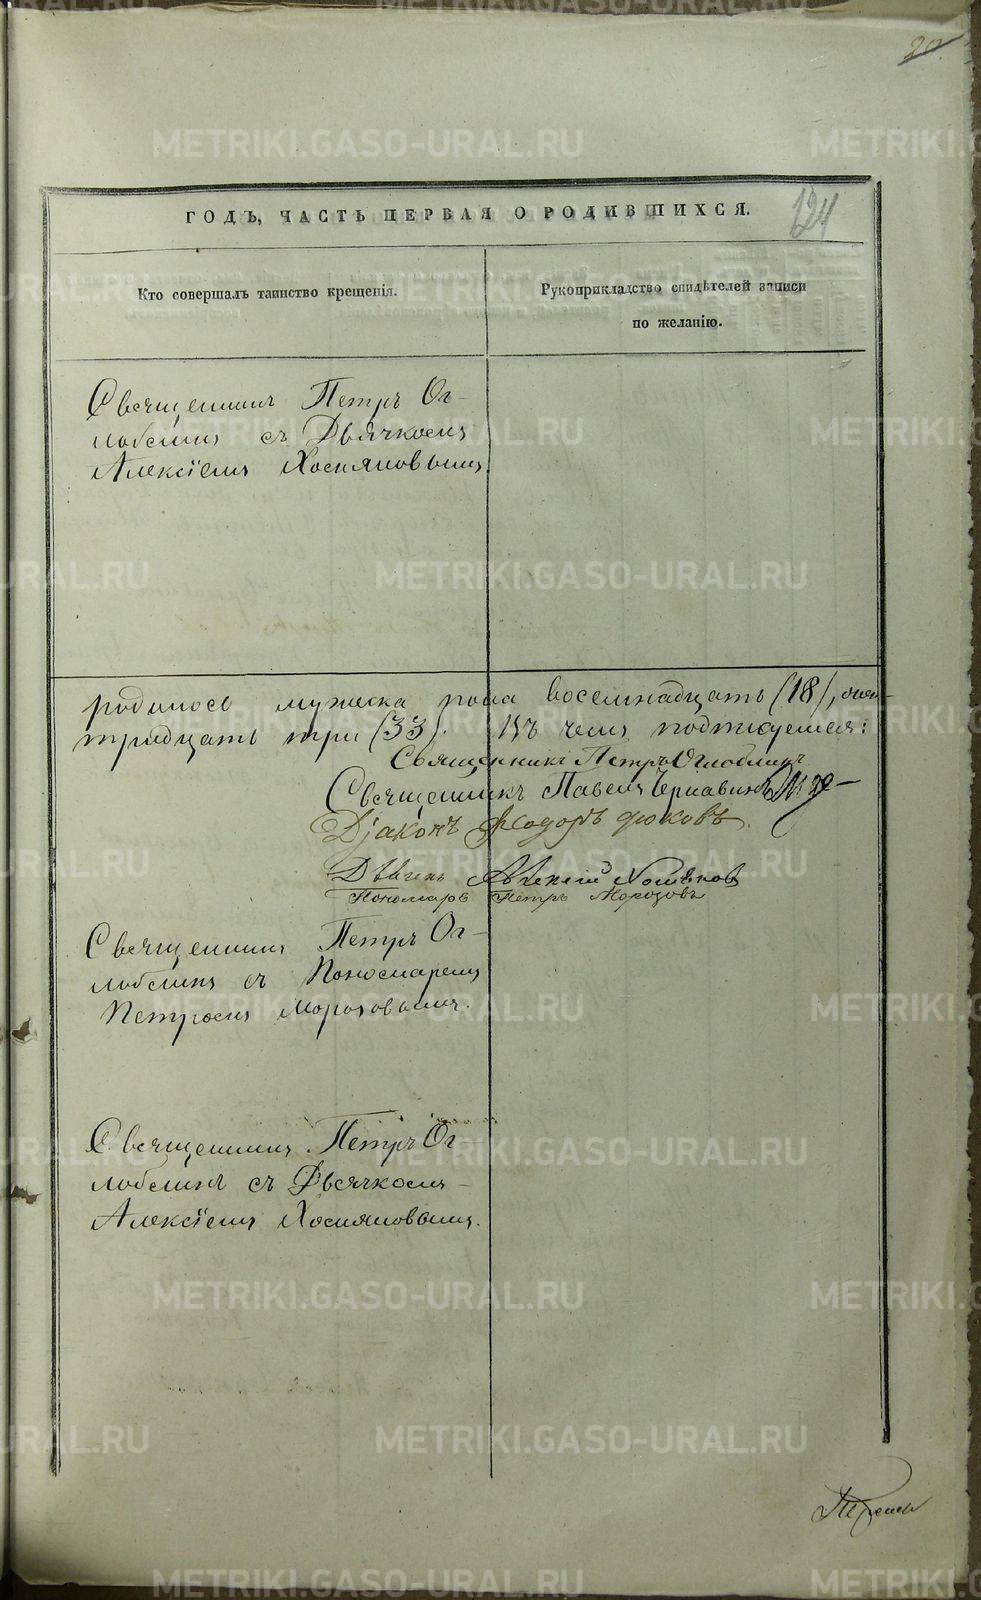 20.
ГОДЪ, ЧАСТЬ ПЕРВАЯ О РОДИВШИХСЯ.
124
Кто совершалъ таинство крещенія.
Рукоприкладство свидѣтелей записи
по желанію.
Священникъ Петръ Ог-
лоблинъ съ Дьячкомъ
Алексіемъ Хомяковымъ.
родилось мужеска пола восемнадцать (18),
тридцать три (33). Въ чемъ подписуемся:
Священникъ Петръ Оглоблинъ
Священникъ Павелъ Чернавинъ
Діаконъ Ѳеодоръ
Дьячекъ Алексій Хомяков
Пономарь Петръ Морозовъ
Священникъ Петръ Ог-
лоблинъ съ Пономаремъ
Петромъ Морозовымъ.
Священникъ Петръ Ог
лоблинъ съ Дьячкомъ
Алексіемъ Хомяковымъ.
METRIKI.GASO-URAL.RU